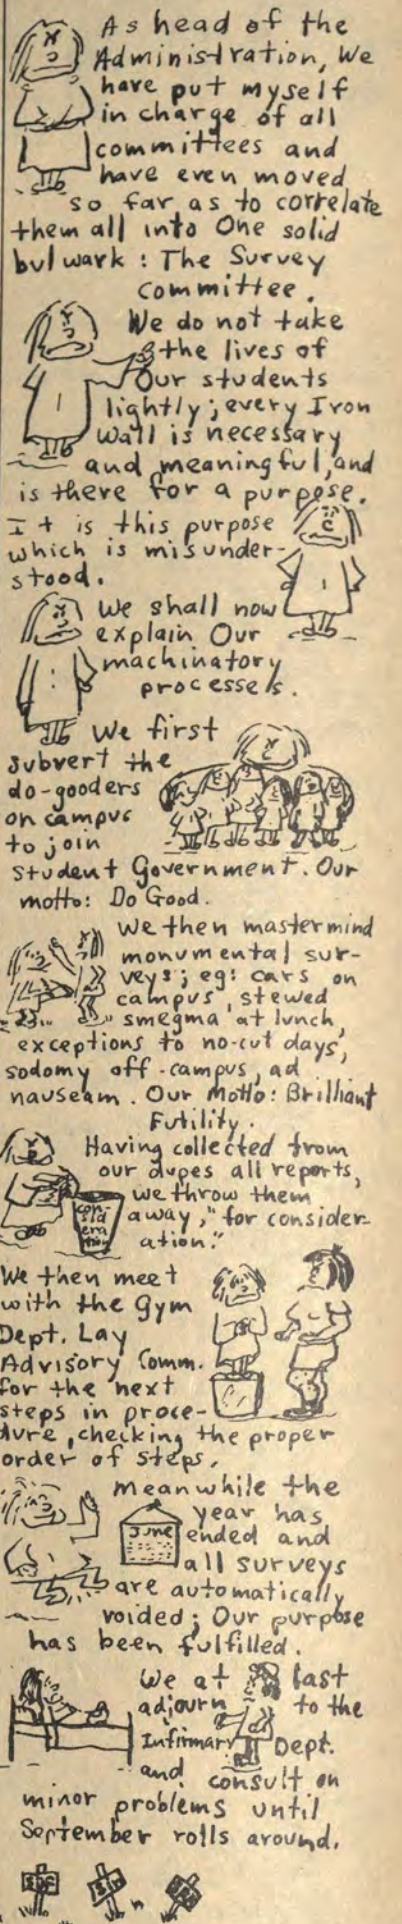 As head of the
Administration, We
have put myself
in charge of all
committees and
have even moved
so far as to correlate
them all into One solid
bulwark : The Survey
Committee.
We do not take
the lives of
Our students
lightly; every Iron
Wall is necessary
and meaningful, and
is there for a purpose.
It is this purpose
which is misunder-
stood.
We shall now
explain Our
machinatory
processes.
We first
subvert the
do-gooders
on campus
to join
Student Government. Our
motto: Do Good.
We then mastermind
monumental sur-
veys; eg: cars on
campus, stewed
smegma at lunch,
exceptions to no-cut days,
sodomy off-campus, ad
nauseam. Our Motto: Brilliant
Futility.
Having collected from
our dupes all reports,
we throw them
away, "for consider-
ation."
con-
sid
era
tion
We then meet
with the Gym
Dept. Lay
Advisory Comm.
for the next
steps in proce-
dure, checking the proper
order of steps.
Meanwhile the
year has
June
ended and
all surveys
are automatically
voided; Our purpose
has been fulfilled.
We at last
adjourn to the
Infirmary Dept.
and consult on
minor problems until
September rolls around.